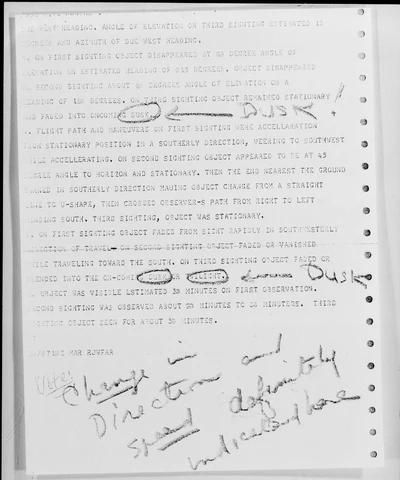 DUE WEST HEADING. ANGLE OF ELEVATION ON THIRD SIGHTING ESTIMATED 15
DEGREES AND AZIMUTH OF DUE WEST HEADING.
ON FIRST SIGHTING OBJECT DISAPPEARED AT DEGREE ANGLE OF
ELEVATION ON ESTIMATED HEADING OF DEGREES. OBJECT DISAPPEARED
ON SECOND SIGHTING ABOUT DEGREES ANGLE OF ELEVATION ON A
HEADING OF DEGREES. ON THIRD SIGHTING OBJECT REMAINED STATIONARY
AND FADED INTO ONCOMING DUSK. DUSK!
FLIGHT PATH AND MANEUVERS ON FIRST SIGHTING WERE ACCELLARATION
FROM STATIONARY POSITION IN A SOUTHERLY DIRECTION, VEERING TO SOUTHWEST
WHILE ACCELLERATING. ON SECOND SIGHTING OBJECT APPEARED TO BE AT 45
DEGREE ANGLE TO HORIZON AND STATIONARY. THEN THE END NEAREST THE GROUND
IN SOUTHERLY DIRECTION MAKING OBJECT CHANGE FROM A STRAIGHT
LINE TO U-SHAPE, THEN CROSSED OBSERVER-S PATH FROM RIGHT TO LEFT
HEADING SOUTH. THIRD SIGHTING, OBJECT WAS STATIONARY.
ON FIRST SIGHTING OBJECT FADED FROM SIGHT RAPIDLY IN SOUTHWESTERLY
DIRECTION OF TRAVEL. ON SECOND SIGHTING OBJECT FADED OR VANISHED
WHILE TRAVELING TOWARD THE SOUTH. ON THIRD SIGHTING OBJECT FADED OR
BLENDED INTO THE ON-COMING DUSK OR TWILIGHT. DUSK
OBJECT WAS VISIBLE ESTIMATED 30 MINUTES ON FIRST OBSERVATION.
SECOND SIGHTING WAS OBSERVED ABOUT MINUTES TO MINUTES. THIRD
SIGHTING OBJECT SEEN FOR ABOUT 30 MINUTES.
MAR RJWFAR
Change in
Direction and
speed definitely